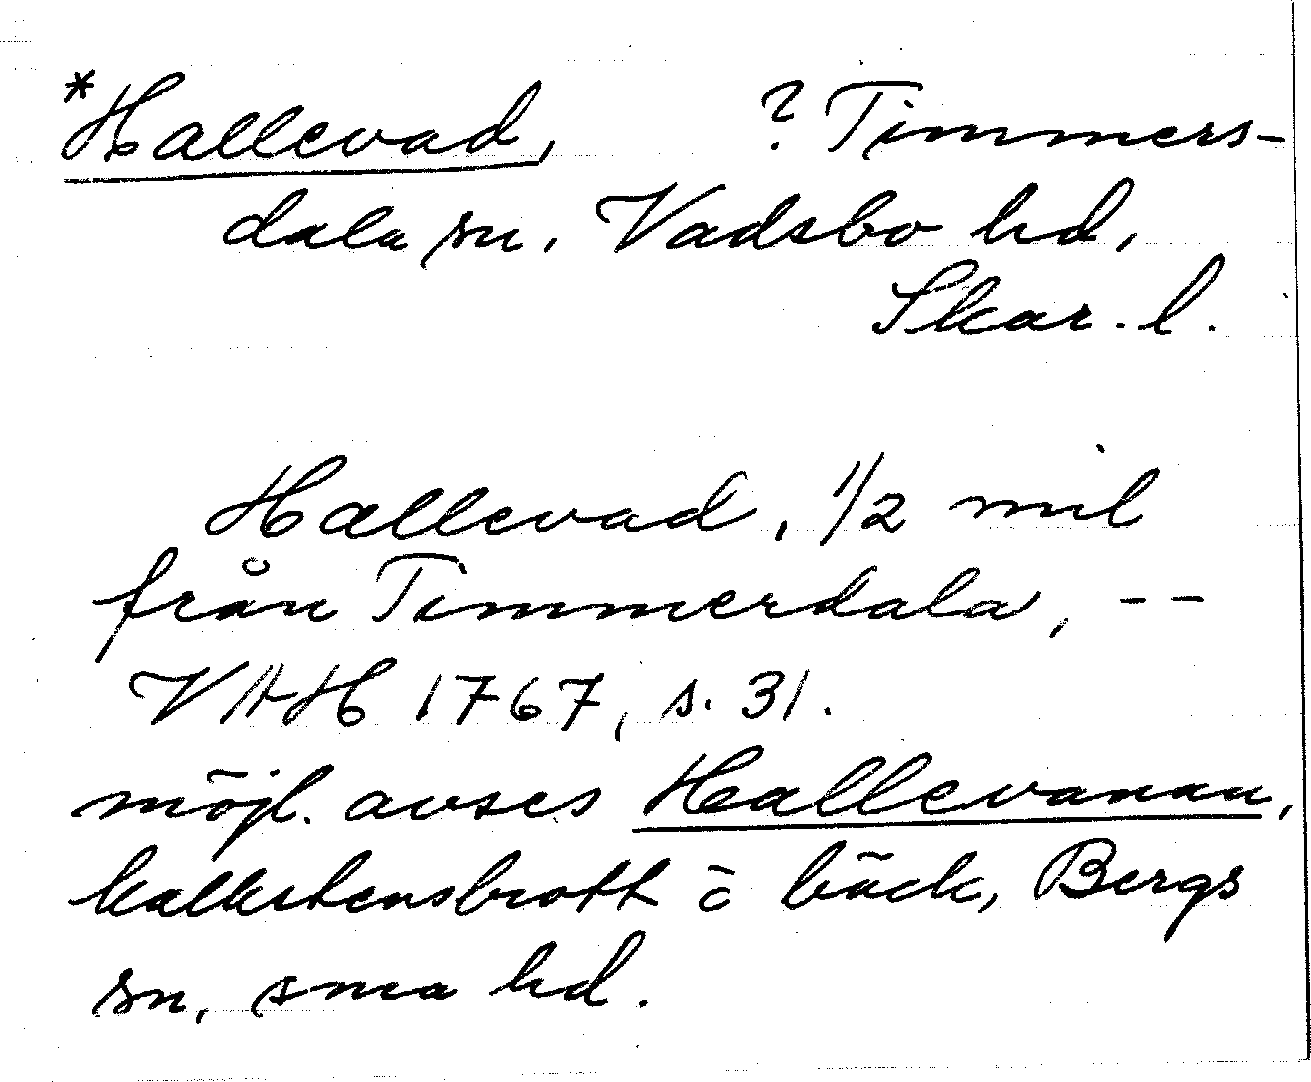 *Hallevad, ? Timmers-
dala sn. Vadsbo hd,
Skar. l.
Hallevad, 1/2 mil
från Timmerdala, --
VAH 1767, s. 31.
möjl. avses Hallevanan,
kalkstensbrott o bäck, Bergs
sn, sma hd.